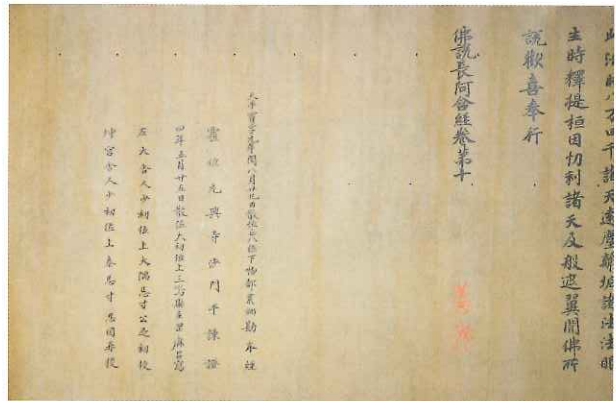 此法時八万四千諸天遠塵離垢諸法法眼
主時釋提桓因忉利諸天及般遮翼聞佛所
說歡喜奉行
佛說長阿含經卷第十
善光
天平寶字元年閏八月 日散位 八位下物部 勘本經
元興寺沙門平 證
四年五月廿五日散位大初位上三嶋縣主 麻呂寫
左大舍人少初位上大隅忌寸公足初校
坤宮舍人少初位上秦忌寸忍國再校